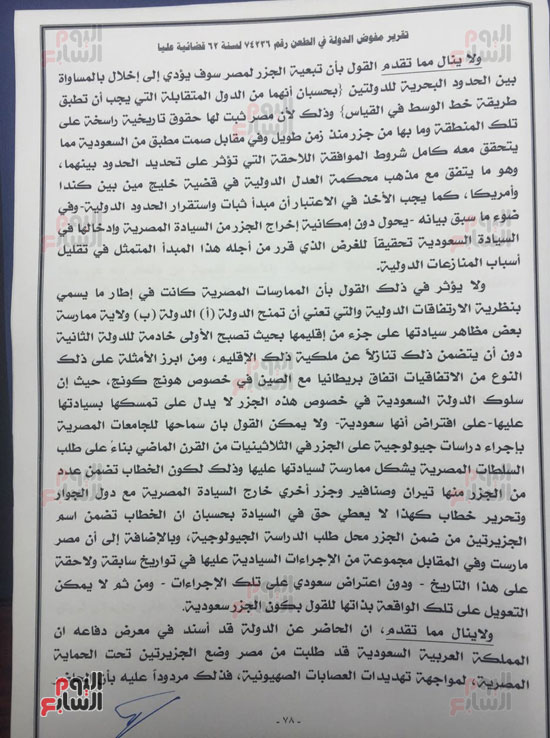 تقرير مفوض الدولة في الطعن رقم ٧٤٢٣٦ لسنة ٦٢ قضائية عليا
ولا ينال مما تقدم القول بأن تبعية الجزر لمصر سوف يؤدي إلى إخلال بالمساواة
بين الحدود البحرية للدولتين {بحسبان أنهما من الدول المتقابلة التي يجب أن تطبق
طريقة خط الوسط في القياس} وذلك لأن مصر ثبت لها حقوق تاريخية راسخة على
تلك المنطقة وما بها من جزر منذ زمن طويل وفي مقابل صمت مطبق من السعودية مما
يتحقق معه كامل شروط الموافقة اللاحقة التي تؤثر على تحديد الحدود بينهما،
وهو ما يتفق مع مذهب محكمة العدل الدولية في قضية خليج مين بين كندا
وأمريكا، كما يجب الأخذ في الاعتبار أن مبدأ ثبات واستقرار الحدود الدولية -وفي
ضوء ما سبق بيانه -يحول دون إمكانية إخراج الجزر من السيادة المصرية وإدخالها في
السيادة السعودية تحقيقاً للغرض الذي قرر من أجله هذا المبدأ المتمثل في تقليل
أسباب المنازعات الدولية.
ولا يؤثر في ذلك القول بأن الممارسات المصرية كانت في إطار ما يسمي
بنظرية الارتفاقات الدولية والتي تعني أن تمنح الدولة (أ) الدولة (ب) ولاية ممارسة
بعض مظاهر سيادتها على جزء من إقليمها بحيث تصبح الأولى خادمة للدولة الثانية
دون أن يتضمن ذلك تنازلاً عن ملكية ذلك الإقليم، ومن ابرز الأمثلة على ذلك
النوع من الاتفاقيات اتفاق بريطانيا مع الصين في خصوص هونج كونج، حيث إن
سلوك الدولة السعودية في خصوص هذه الجزر لا يدل على تمسكها بسيادتها
عليها-على افتراض أنها سعودية- ولا يمكن القول بان سماحها للجامعات المصرية
بإجراء دراسات جيولوجية على الجزر في الثلاثينيات من القرن الماضي بناءً على طلب
السلطات المصرية يشكل ممارسة لسيادتها عليها وذلك لكون الخطاب تضمن عدد
من الجزر منها تيران وصنافير وجزر أخري خارج السيادة المصرية مع دول الجوار
وتحرير خطاب كهذا لا يعطي حق في السيادة بحسبان ان الخطاب تضمن اسم
الجزيرتين من ضمن الجزر محل طلب الدراسة الجيولوجية، وبالإضافة إلى أن مصر
مارست وفي المقابل مجموعة من الإجراءات السيادية عليها في تواريخ سابقة ولاحقة
على هذا التاريخ - ودون اعتراض سعودي على تلك الإجراءات - ومن ثم لا يمكن
التعويل على تلك الواقعة بذاتها للقول بكون الجزر سعودية.
ولاينال مما تقدم، ان الحاضر عن الدولة قد أسند في معرض دفاعه ان
المملكة العربية السعودية قد طلبت من مصر وضع الجزيرتين تحت الحماية
المصرية، لمواجهة تهديدات العصابات الصهيونية، فذلك مردوداً عليه
- ٧٨ -
اليوم السابع